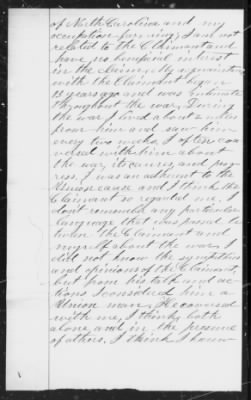 of North Carolina and my
occupation farming; I am not
related to the Claimant and
have no beneficial interest
in the claim; My acquaintance
with the Claimant began
13 years ago and was intimate
throughout the war. During
the war I lived about 2 miles
from him and saw him
every two weeks. I often con
versed with him about
the war, its causes, and prog
ress. I was an adherent to the
Union cause and I think the
Claimant so regarded me. I
dont remember any particular
language that was passed be
tween the Claimant and
myself about the war. I
did not know the sympathies
and opinions of the Claimant,
but from his talk and ac
tions I considered him a
Union man. He conversed
with me, I think, both
alone and in the presence
of others. I think I knew